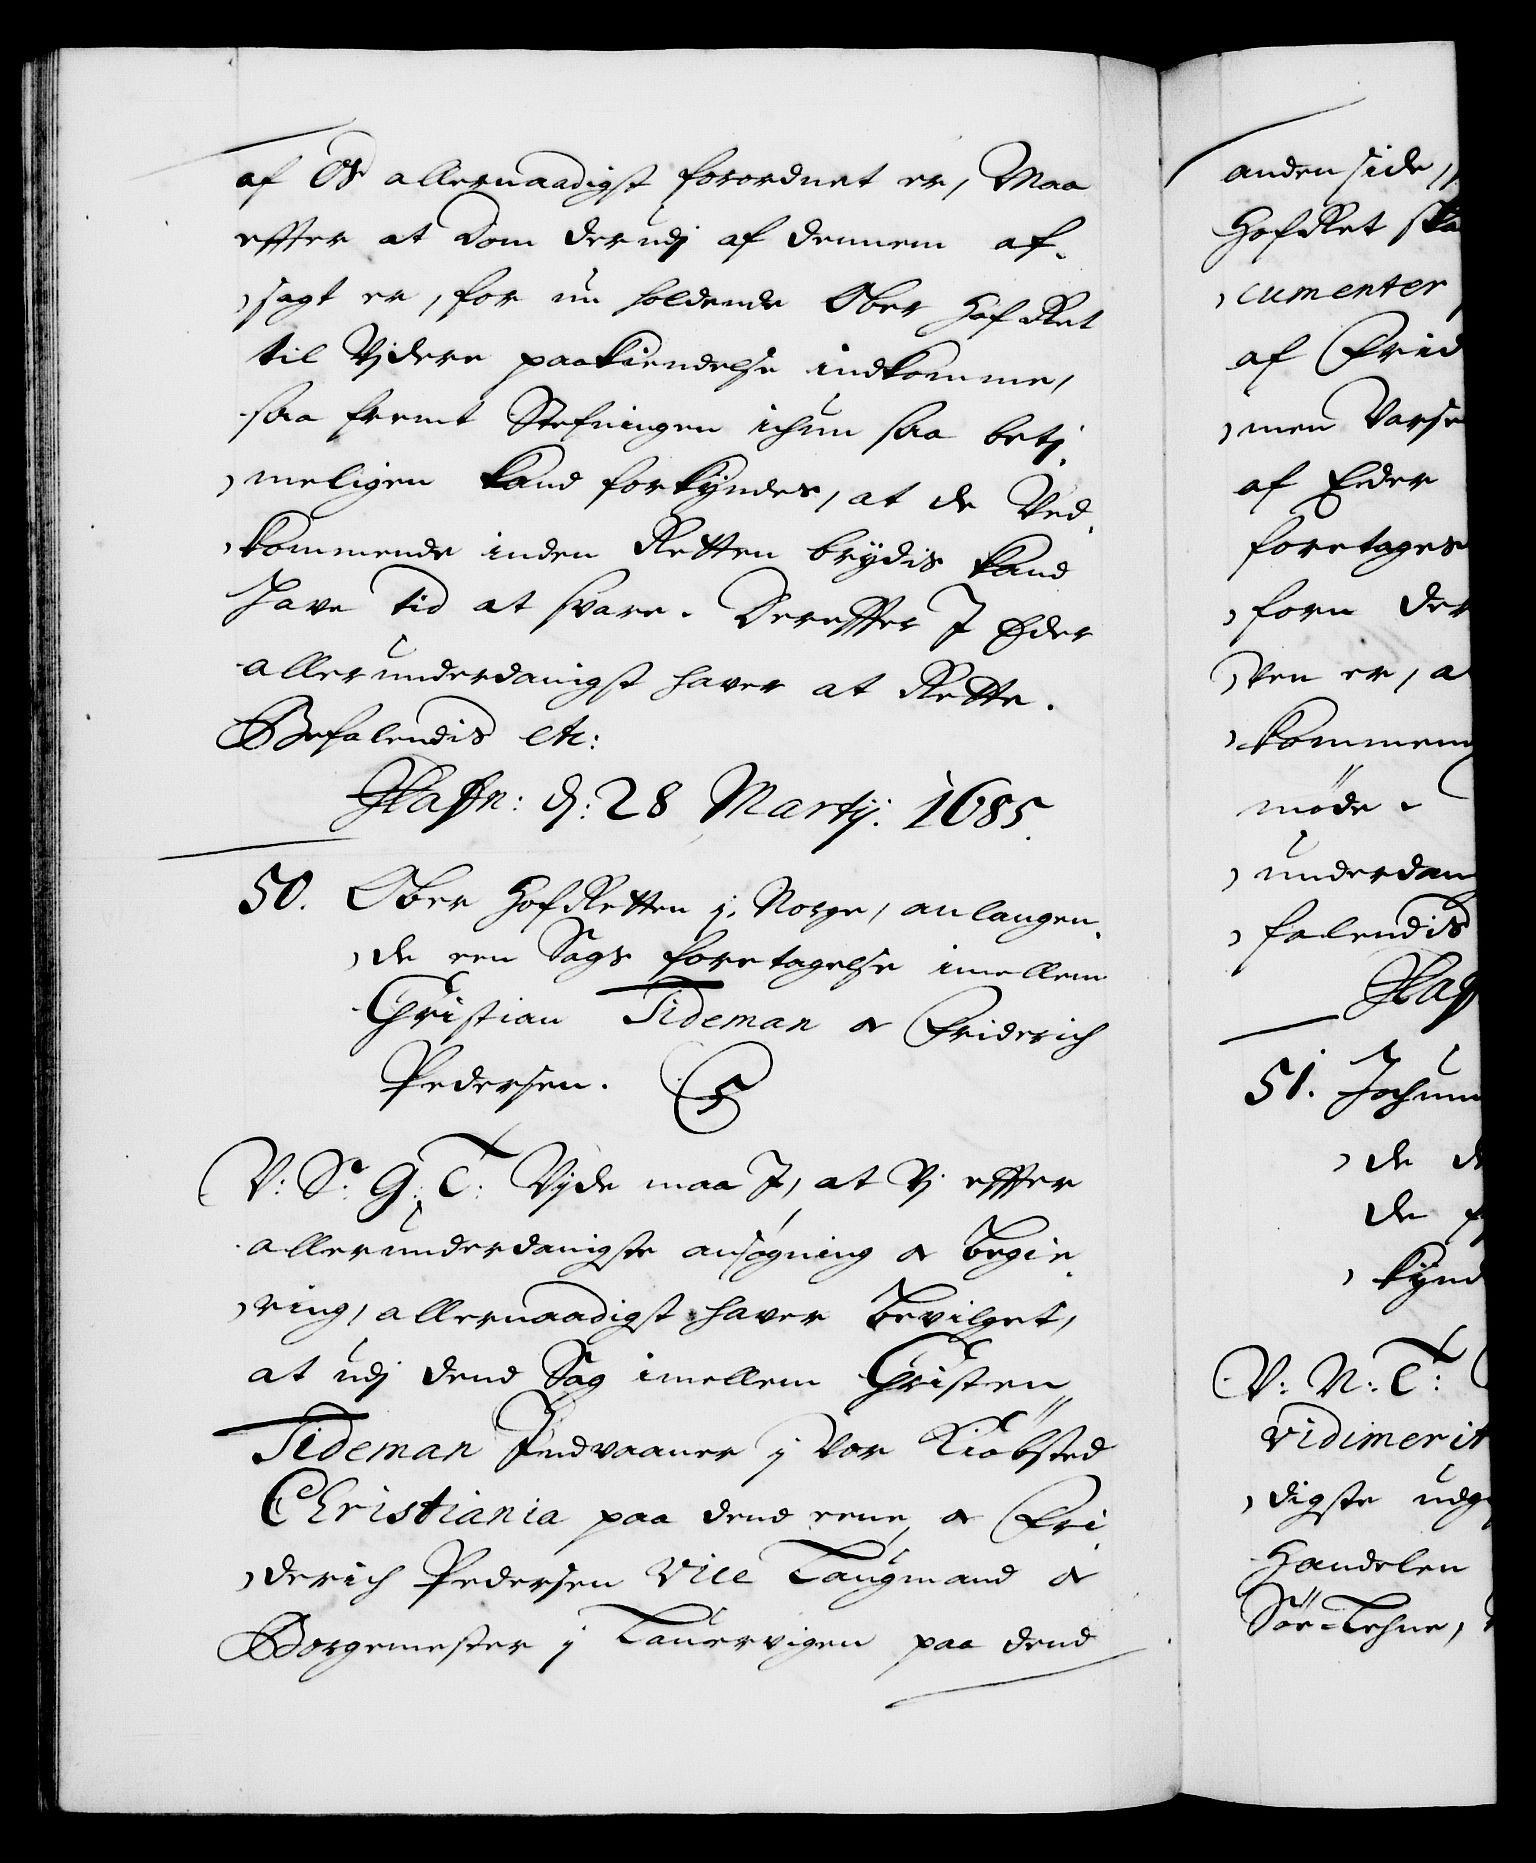 af Os allernaadigst forordnet er, Maa
effter at Dom derudj af dennem af-
sagt er, for nu holdende Ober Hof Ret
til Vjdere paakiendelse indkomme,
saa fremt Stefningen ichun saa betj-
meligen kand forkyndes, at de Ved-
kommende inden Retten brydis kand
have tid at svare. Dereffter I Eder
allerunderdanigst haver at Rette.
Befalendis etc:
Haffn: d: 28 Martij: 1685.
50. Ober HofRetten j Norge, anlangen-
de een Sags foretagelse imellem
Christian Tideman oc Friderich
Pedersen.
V: S: G: T: Vjde maa I, at Vj effter
allerunderdanigste ansøgning oc begie-
ring, allernaadigst haver bevilget,
at udj dend Sag imellem Christen
Tideman Indvaaner j Vor Kiøbsted
Christiania paa dend eene, oc Fri-
derich Pedersen Vice Laugmand oc
Borgemester j Lauervigen paa dend
anden side,
HofRet ska
cumenter
af Frid
men Varse
af Eder
foretages
forn der
ven er, a
kommen
møde.
underdan
falendis
Haff
51. Jochum
de de
de f
kynd
V: N: T:
vidimerit
digste udg
Handelen
Søe-Lehne,